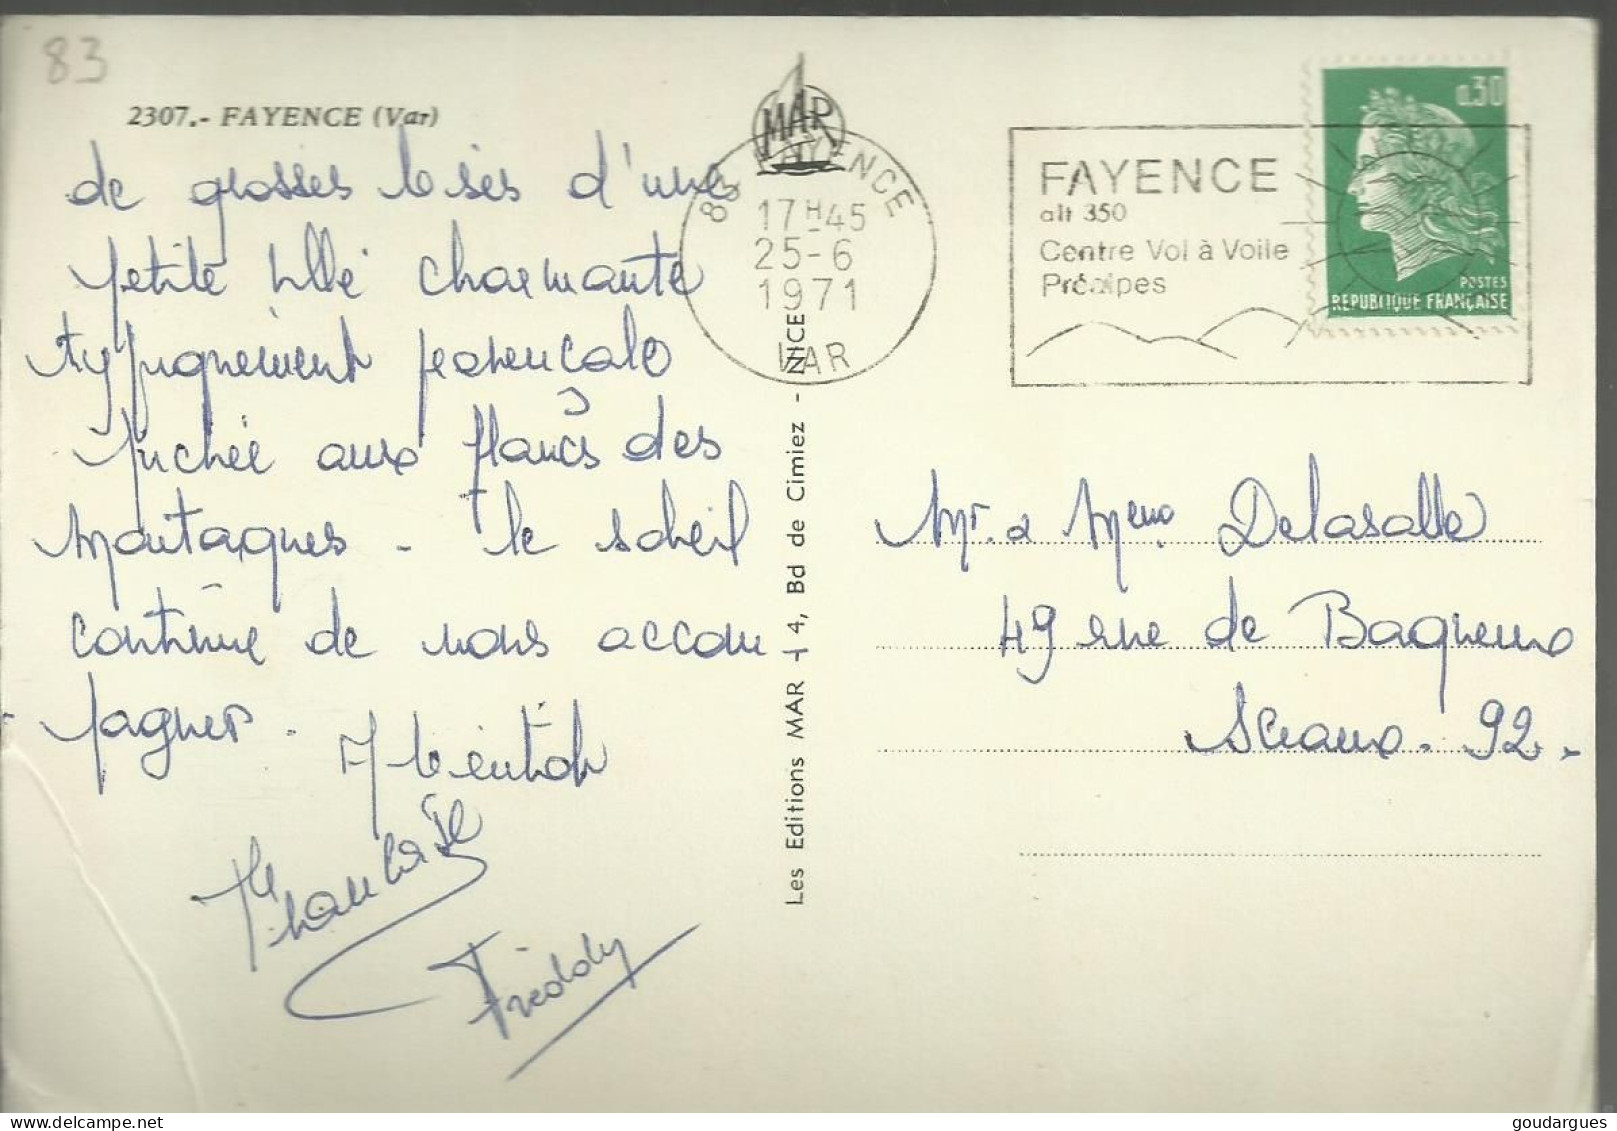 83
2307.- FAYENCE (Var)
de grosses bises d'une
petite ville charmante
typiquement provencale
juchée aux flancs des
montagnes - le soleil
continue de nous accom
pagner.
A bientôt
Freddy
MAR
83 FAYENCE
17H45
25-6
1971
VAR
FAYENCE
alt 350
Centre Vol à Voile
Préalpes
0,30
POSTES
REPUBLIQUE FRANÇAISE
Les Editions MAR - 4, Bd de Cimiez - NICE
Mr. & Mme. Delasalle
49 rue de Bagneux
Sceaux. 92.
goudargues @ delcampe.net